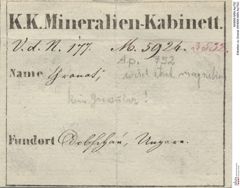 K.K. Mineralien-Kabinett.
V. d. N. 177. M. 5924.
Ap. 952
Name Granat,
wird stark magnetisch
kein Grossular!
Fundort Dobschau, Ungarn.